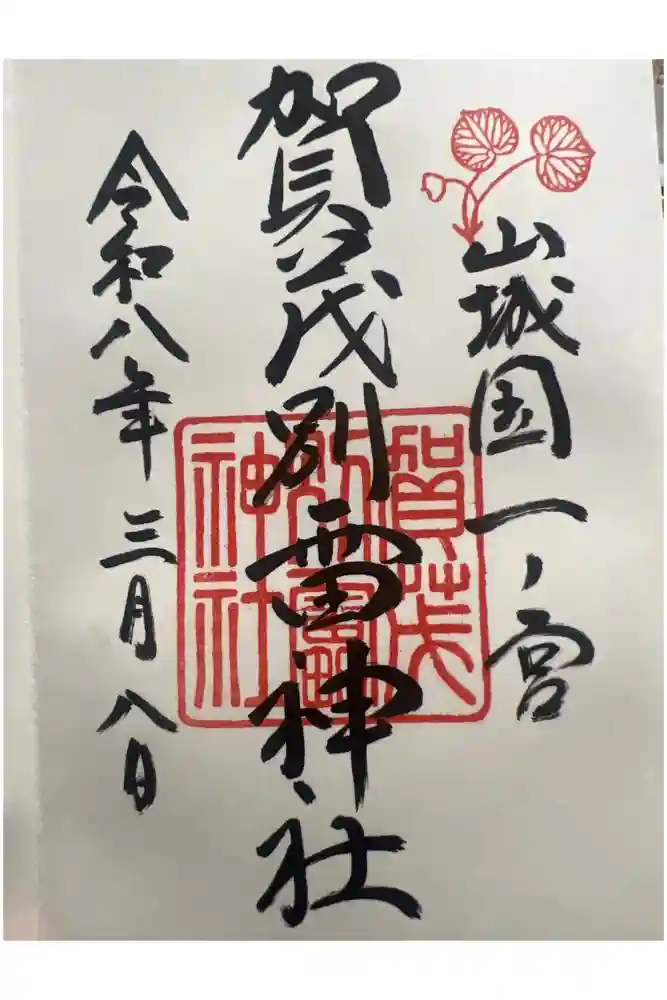 山城国一ノ宮
賀茂別雷神社
令和八年三月八日
賀茂
別雷
神社